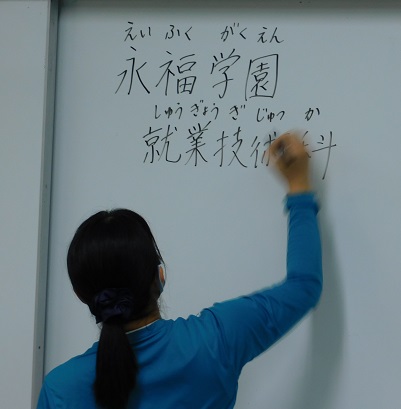 えいふくがくえん
永福学園
しゅうぎょうぎじゅつか
就業技術科